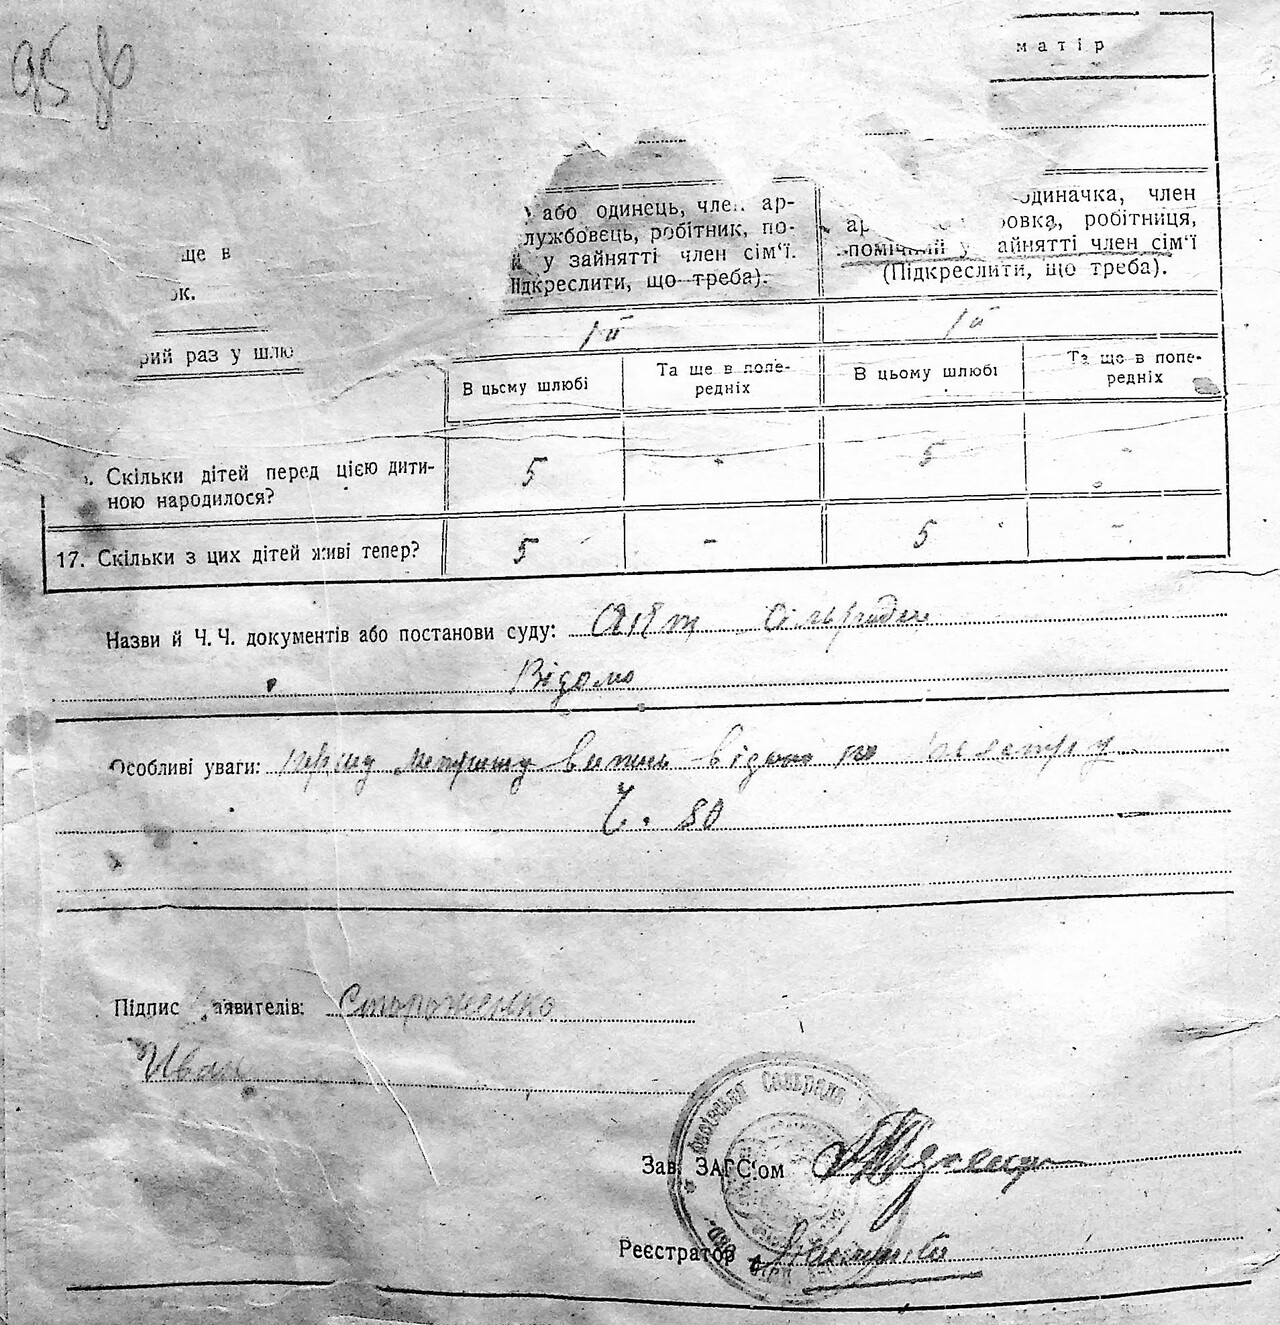 95
матір
або одинець, член ар-
лужбовець, робітник, по-
у зайнятті член сім'ї.
ідкреслити, що треба).
одиначка, член
ар овка, робітниця,
помічний у зайнятті член сім'ї
(Підкреслити, що треба).
ще в
ок.
1й 1й
рий раз у шлю
В цьому шлюбі Та ще в попе-редніх В цьому шлюбі Та ще в попе-редніх
Скільки дітей перед цією дити-
ною народилося? 5 - 5 -
17. Скільки з цих дітей живі тепер? 5 - 5 -
Назви й Ч. Ч. документів або постанови суду: Акт сільради
Відомо
Особливі уваги: першу метричну випись видано по реєстру
Ч. 80
Підпис заявителів: Стороженко
Иван
Зав. ЗАГС'ом
Реєстратор